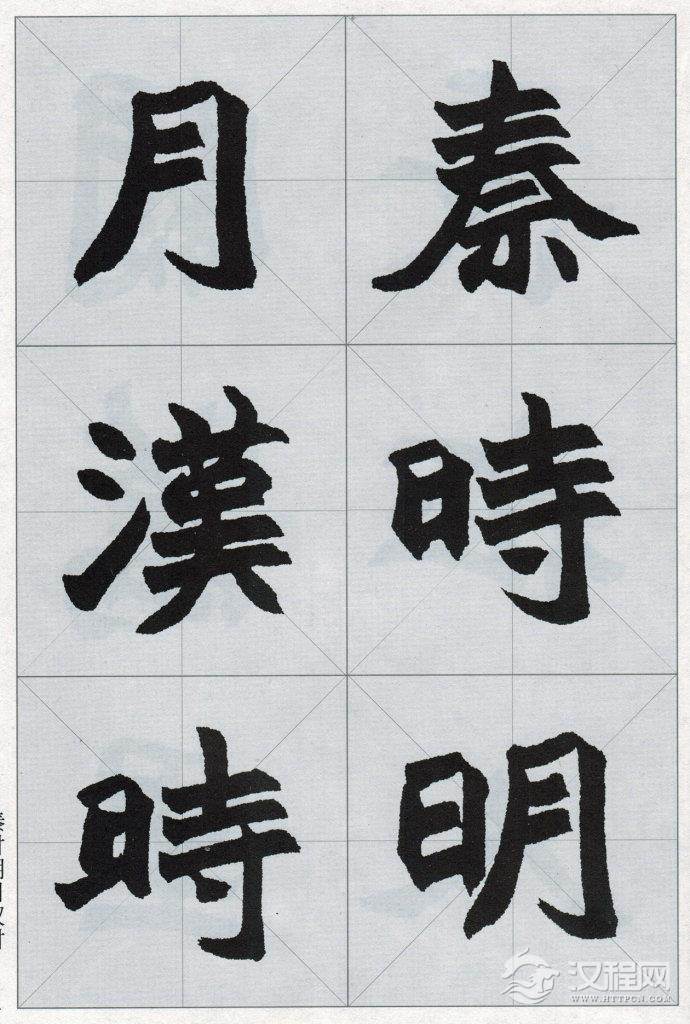 秦時明
月漢時
汉程网
WWW.HTTPCN.COM